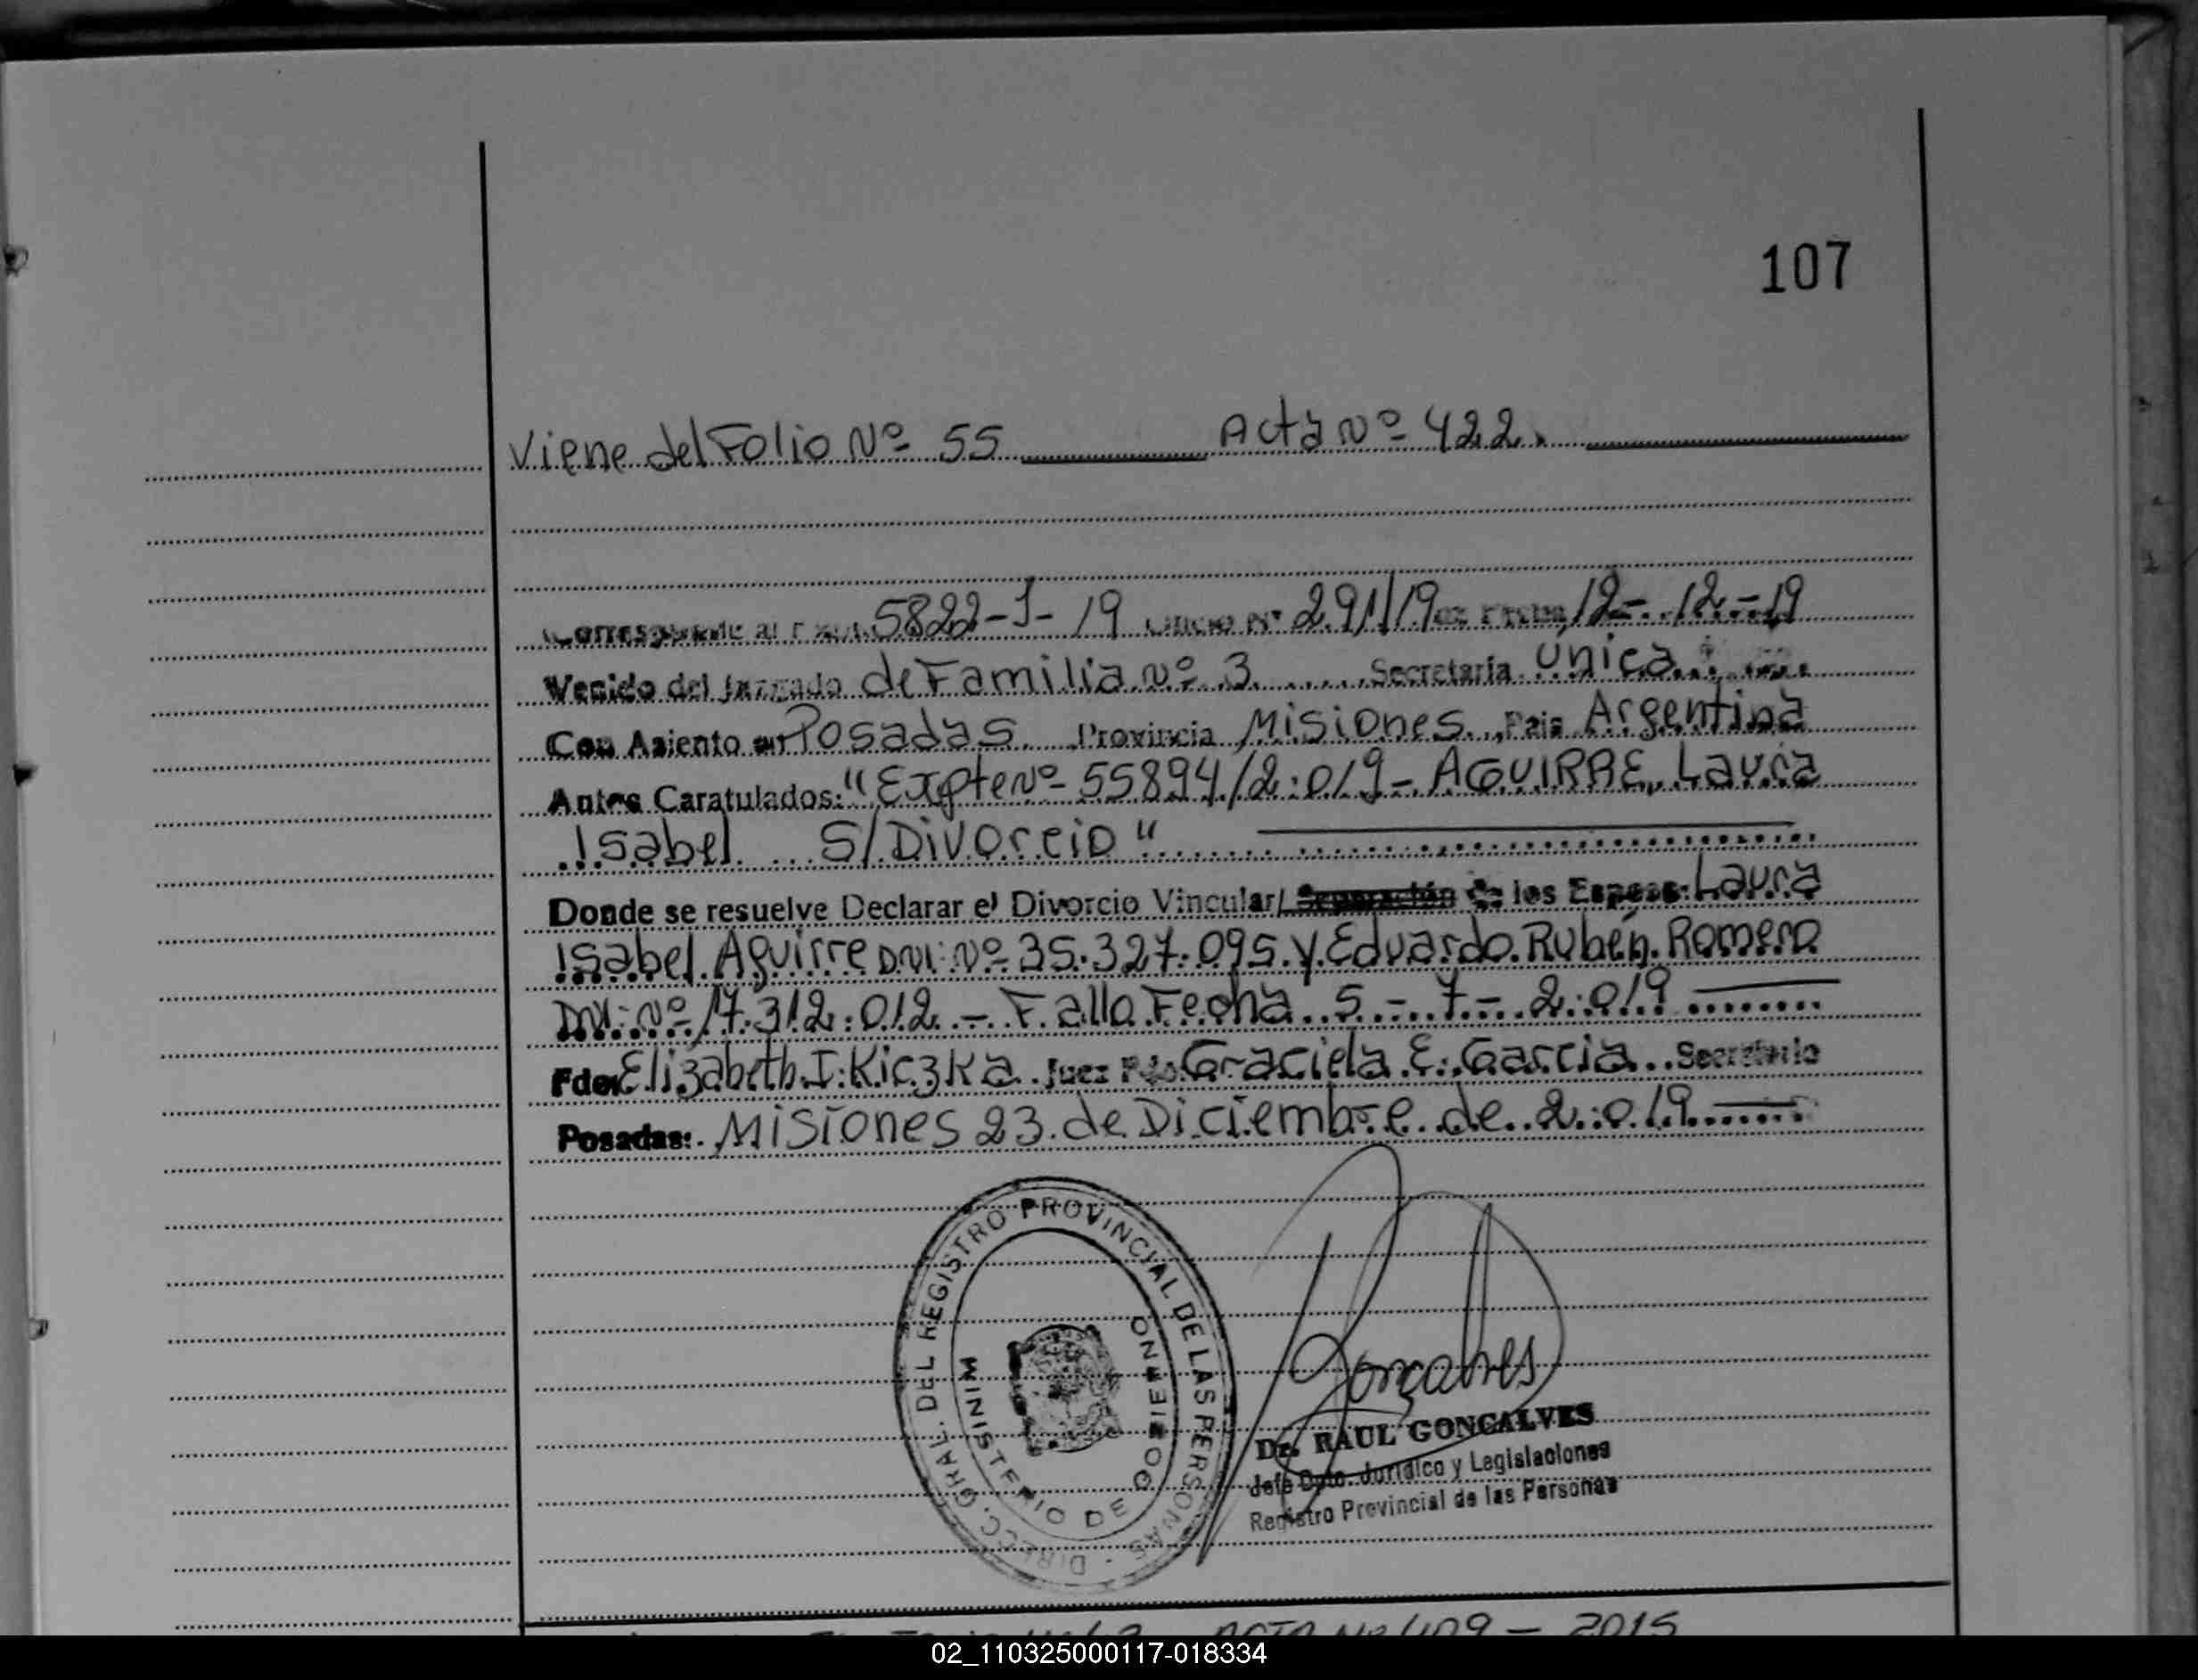 107
Viene del Folio Nº 55 Acta Nº 422.
Corresponde al Expte. 5822-J-19 Oficio Nº 291/19 de Fecha 12-12-19
Venido del Juzgado de Familia Nº 3 Secretaría Unica
Con Asiento en Posadas Provincia Misiones Pais Argentina
Autos Caratulados: "Expte Nº 55894/2019 - AGUIRRE, Laura
Isabel S/Divorcio"
Donde se resuelve Declarar el Divorcio Vincular/ Separación de los Esposos: Laura
Isabel Aguirre DNI: Nº 35.327.095 y Eduardo Rubén Romero
DNI: Nº 17.312.012 - Fallo Fecha 5-7-2019
Fdo: Elizabeth I. Kiczka Juez Fdo: Graciela E. Garcia Secretario
Posadas: Misiones 23 de Diciembre de 2019
DIRECC. GRAL. DEL REGISTRO PROVINCIAL DE LAS PERSONAS
MINISTERIO DE GOBIERNO
Gonçalves
Dr. RAUL GONCALVES
Jefe Dpto. Jurídico y Legislaciones
Registro Provincial de las Personas
ACTA Nº 409 - 2015
02_110325000117-018334